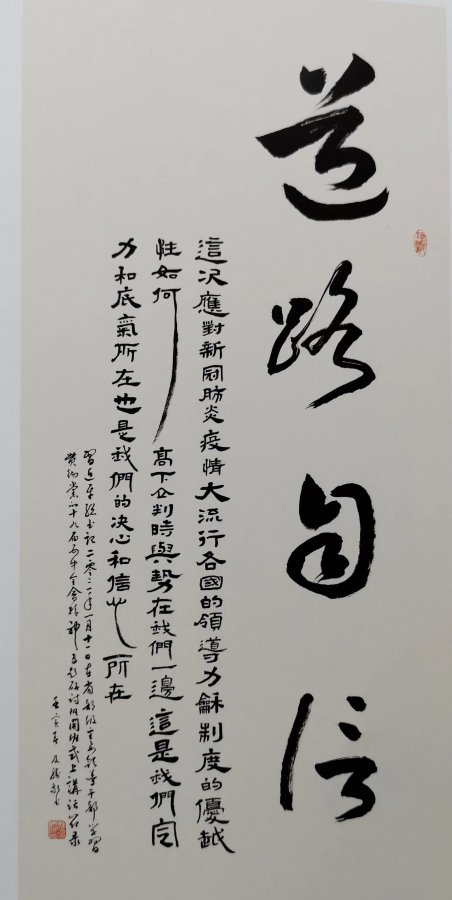 道路自信
這次應對新冠肺炎疫情大流行各國的領導力龢制度的優越
性如何高下立判時與勢在我們一邊這是我們定
力和底氣所在也是我們的决心和信心所在
習近平總书記二零二一年一月十一日在省部級主要領導干部學習
貫徹党的十九屆五中全會精神专題研討班開班式上講話节录
壬寅春